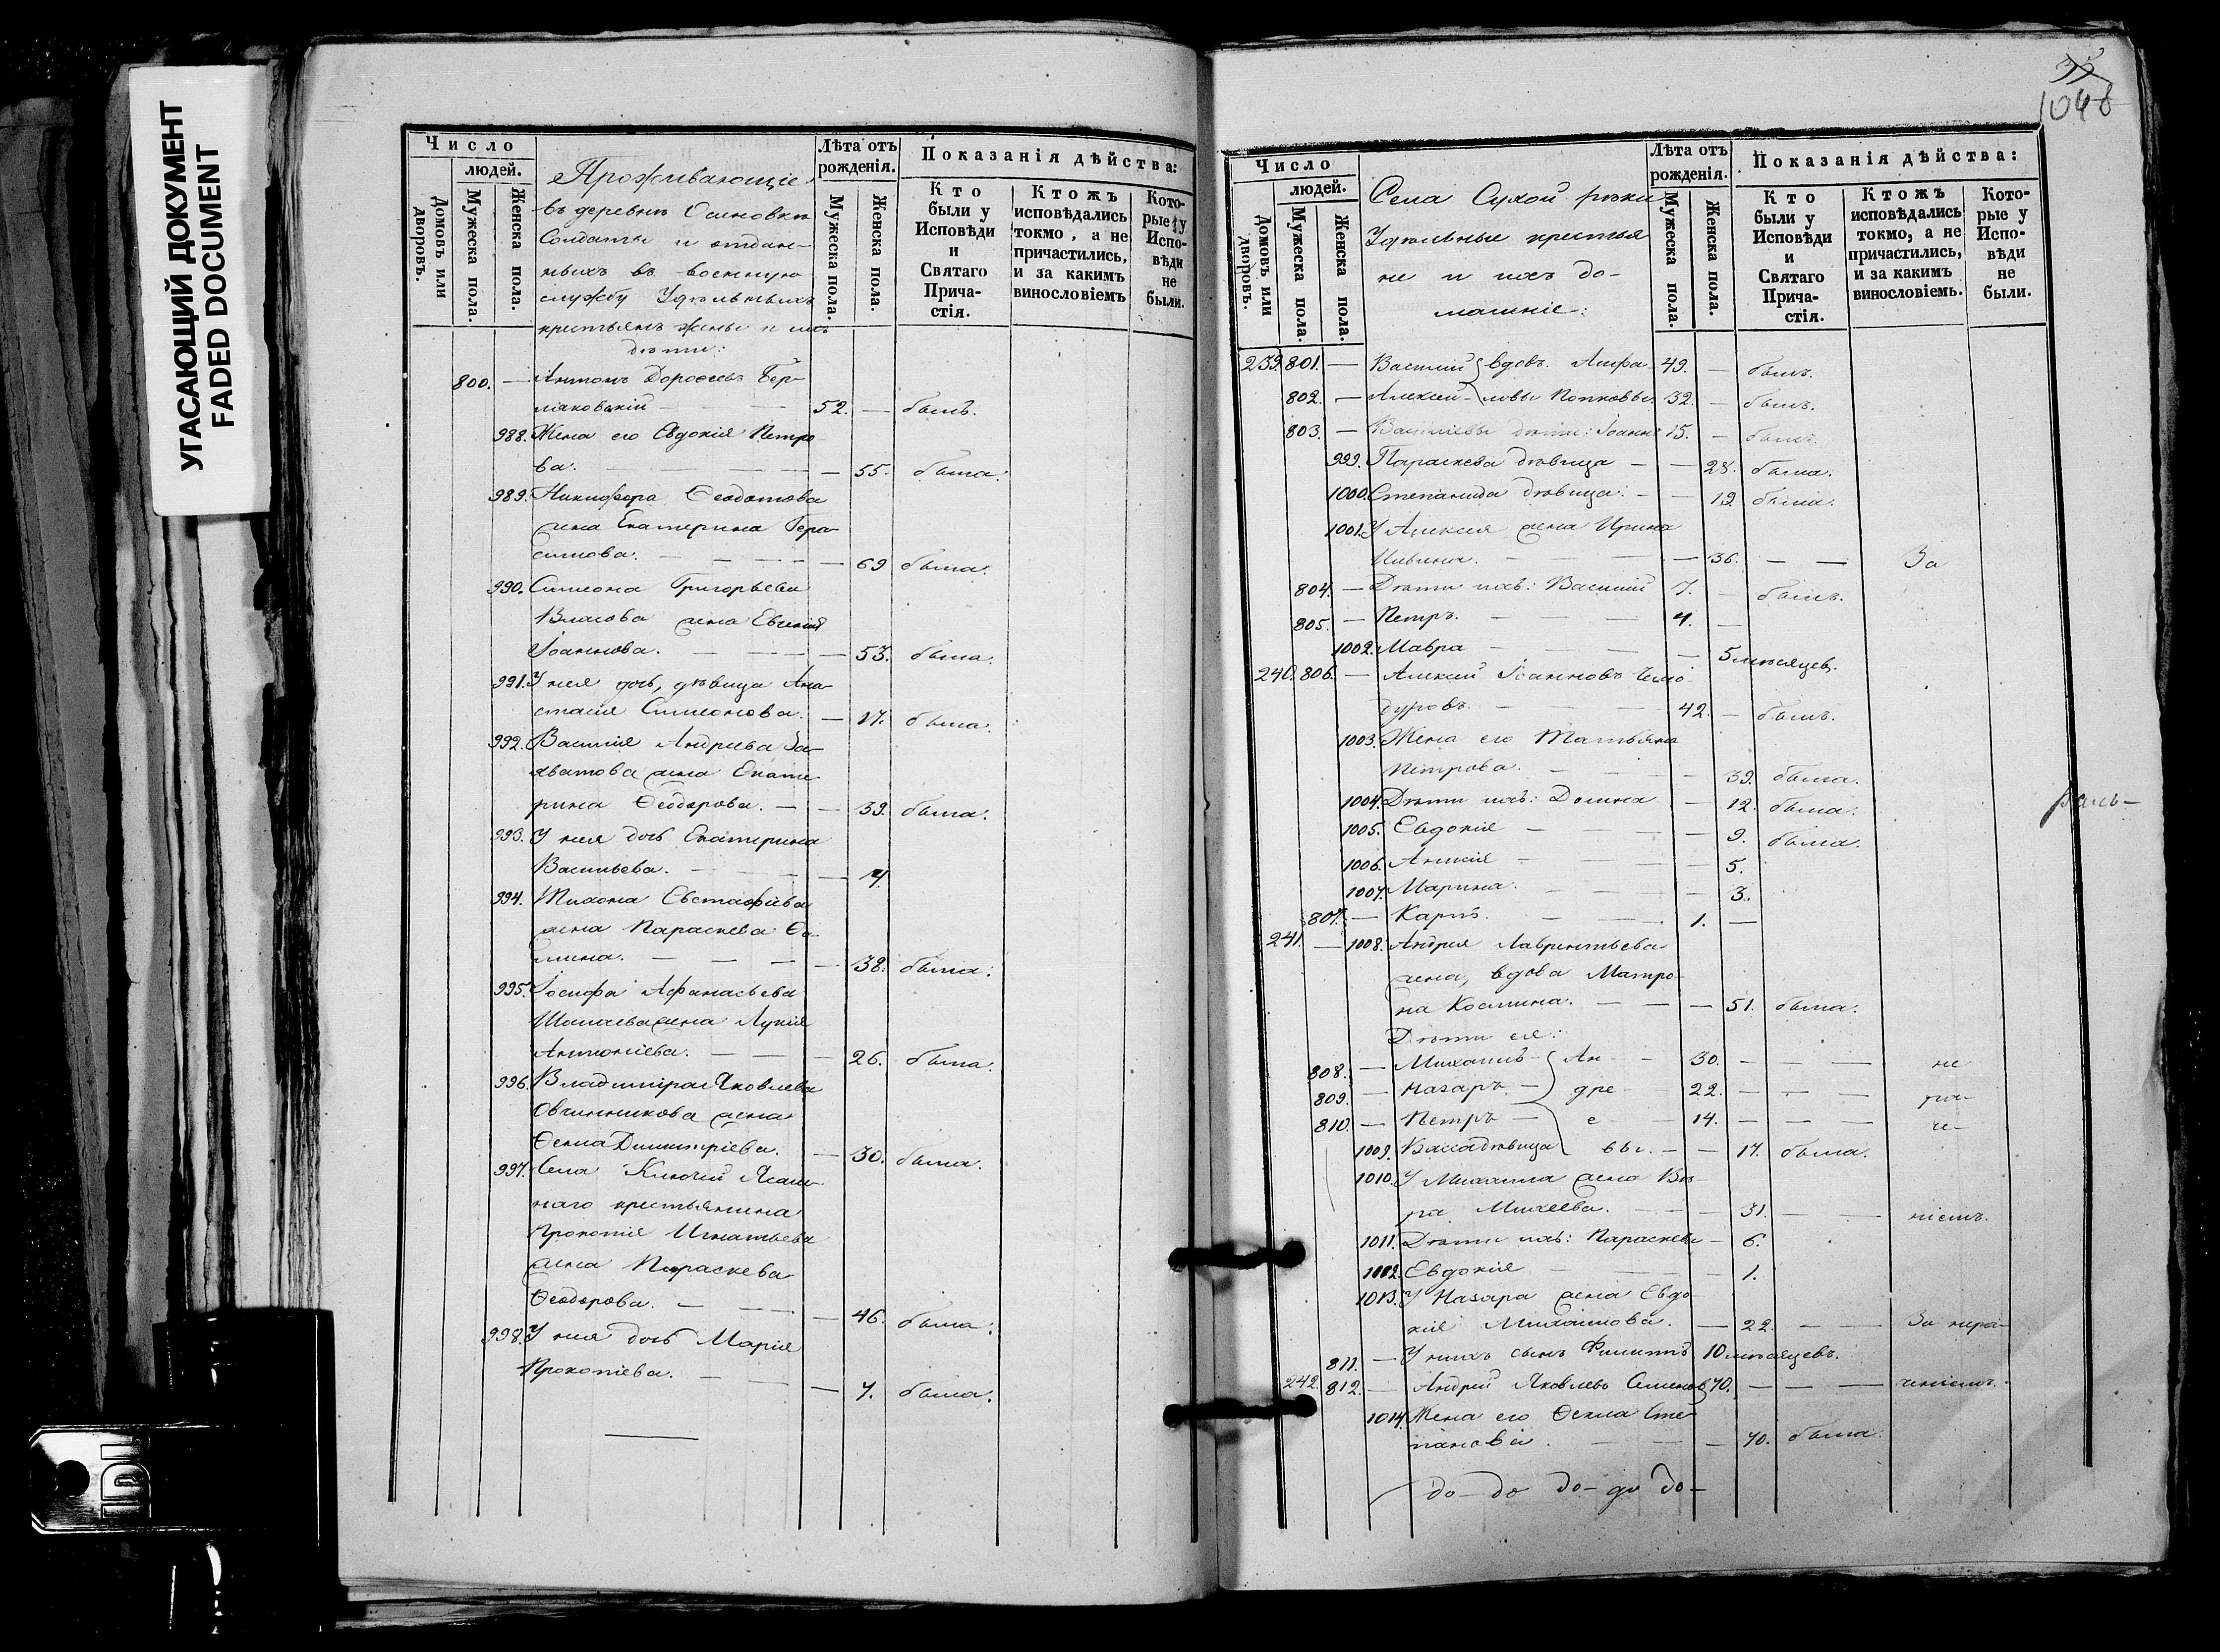 УГАСАЮЩИЙ ДОКУМЕНТ
FADED DOCUMENT
Число
людей.
Домовъ или дворовъ.
Мужеска пола.
Женска пола.
Проживающіе
въ деревнѣ Осиновкѣ
Солдаты и отдан-
ныхъ въ военную
службу Удѣльныхъ
крестьянъ жены и ихъ
дѣти:
Лѣта отъ рожденія.
Мужеска пола.
Женска пола.
Показанія дѣйства:
Кто были у Исповѣди и Святаго Причастія.
Ктожъ исповѣдались токмо, а не причастились, и за какимъ винословіемъ
Которые у Исповѣди не были.
800. — Антонъ Дороѳеевъ
52. — былъ.
988. Жена его Евдокія Петро
ва. — 55. была.
989. Никифора Ѳеодотова
жена Екатерина Гера-
симова. — 69 была.
990. Симеона Григорьева
Власова жена Евгенія
Іоаннова. — 53. была.
991. У нея дочь, дѣвица Ана-
стасія Симеонова. — 17. была.
992. Василія Андреева
жена Екате-
рина Ѳеодорова. — 39. была.
993. У нея дочь Екатерина
Васильева. — 4
994. Тихона Евстафіева
жена Параскева Ѳо-
мина. — 38. была.
995. Іосифа Афанасьева
жена Лукія
Антоніева. — 26. была.
996. Владиміра Яковлева
Овчинникова жена
Ѳекла Димитріева. — 30. была.
997. Села Ключей
крестьянина
Прокопія Игнатьева
жена Параскева
Ѳеодорова. — 46. была.
998. У нея дочь Марія
Прокопіева. — 7. была.
1048
Число
людей.
Домовъ или дворовъ.
Мужеска пола.
Женска пола.
Села Сухой рѣки
Удѣльные крестья
не и ихъ до-
машніе:
Лѣта отъ рожденія.
Мужеска пола.
Женска пола.
Показанія дѣйства:
Кто были у Исповѣди и Святаго Причастія.
Ктожъ исповѣдались токмо, а не причастились, и за какимъ винословіемъ.
Которые у Исповѣди не были.
239. 801. — Василій вдовъ. 49. — былъ.
802. — Алексей 32. — былъ.
803. — Василіевы дѣти: Іоаннъ 15. — былъ.
999. Параскева дѣвица — 28. была.
1000. Степанида дѣвица. — 19. была.
1001. У Алексея жена Ирина
— 36. — — За
804. — Дѣти ихъ: Василій 7. — былъ.
805. — Петръ. — 4. —
1002. Мавра — 5 мѣсяцев.
240. 806. — Алексей Іоанновъ Чемо
дуровъ. — 42. — былъ.
1003. Жена его Татьяна
Петрова. — 39. была.
1004. Дѣти ихъ: Домна — 12. была.
1005. Евдокія — 9. была.
1006. Анисія — 5.
1007. Марина. — 3.
807. — Карпъ. — 1. —
241. — 1008. Андрея Лаврентьева
жена, вдова Матро-
на Космина. — 51. была.
Дѣти ея:
808. — Михаилъ Ан- 30. — — не
809. — Назаръ дре 22. — —
810. — Петръ е 14. — — че-
1009. Васса дѣвица вы. — 17. была.
1010. У Михаила жена Вѣ-
ра Михеева. — 31. — — ніемъ.
1011. Дѣти ихъ: Параскева — 6.
1012. Евдокія — 1.
1013. У Назара жена Евдо
кія Михаилова. — 22. — — За нера-
811. — У нихъ сынъ Филиппъ 10 мѣсяцевъ.
242. 812. — Андрей Яковлевъ Семенов 70. — — ченіемъ.
1014. Жена его Ѳекла Сте
панова. — 70. была.
до — до до — до до —